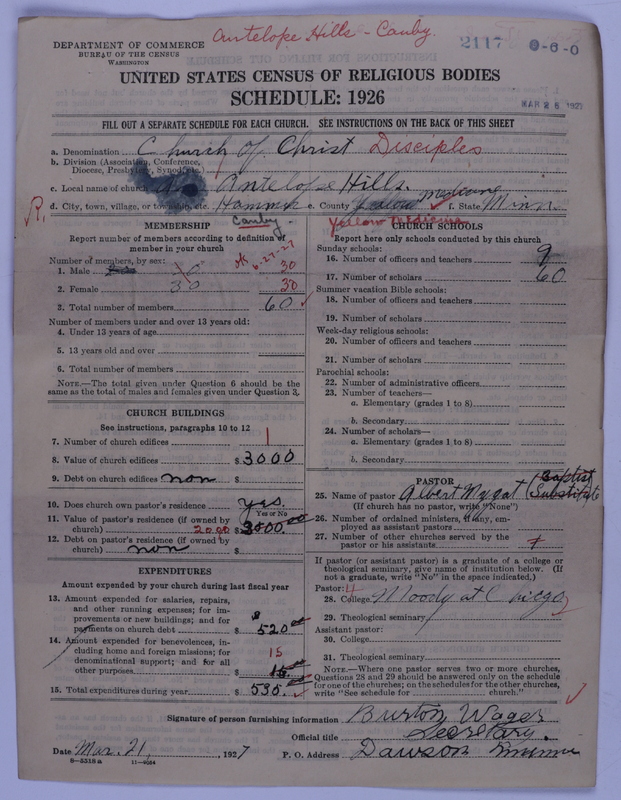 Antelope Hills - Canby.
2117 0-6-0
DEPARTMENT OF COMMERCE
BUREAU OF THE CENSUS
WASHINGTON
UNITED STATES CENSUS OF RELIGIOUS BODIES
SCHEDULE: 1926
MAR 26 1927
FILL OUT A SEPARATE SCHEDULE FOR EACH CHURCH. SEE INSTRUCTIONS ON THE BACK OF THIS SHEET
a. Denomination Church of Christ Disciples
b. Division (Association, Conference, Diocese, Presbytery, Synod, etc.)
c. Local name of church Antelope Hills.
d. City, town, village, or township, etc. Hammer e. County Yellow Medicine f. State Minn
Canby. Yellow Medicine
MEMBERSHIP
Report number of members according to definition of
member in your church
Number of members, by sex:
ok 6-27-27
1. Male 30
2. Female 30 30
3. Total number of members 60
Number of members under and over 13 years old:
4. Under 13 years of age
5. 13 years old and over
6. Total number of members
NOTE.—The total given under Question 6 should be the
same as the total of males and females given under Question 3.
CHURCH BUILDINGS
See instructions, paragraphs 10 to 12
7. Number of church edifices 1
8. Value of church edifices $3000
9. Debt on church edifices non $
10. Does church own pastor's residence? yes.
Yes or No
11. Value of pastor's residence (if owned by
church) 2000 $ 3000.00
12. Debt on pastor's residence (if owned by
church) non $
EXPENDITURES
Amount expended by your church during last fiscal year
13. Amount expended for salaries, repairs,
and other running expenses; for im-
provements or new buildings; and for
payments on church debt $ 520.00
14. Amount expended for benevolences, in-
cluding home and foreign missions; for
denominational support; and for all 15
other purposes $ 15.00
15. Total expenditures during year $ 530.00
CHURCH SCHOOLS
Report here only schools conducted by this church
Sunday schools:
16. Number of officers and teachers 9
17. Number of scholars 60
Summer vacation Bible schools:
18. Number of officers and teachers
19. Number of scholars
Week-day religious schools:
20. Number of officers and teachers
21. Number of scholars
Parochial schools:
22. Number of administrative officers
23. Number of teachers—
a. Elementary (grades 1 to 8)
b. Secondary
24. Number of scholars—
a. Elementary (grades 1 to 8)
b. Secondary
PASTOR
25. Name of pastor Albert Mygat (Baptist Substitute
(If church has no pastor, write "None")
26. Number of ordained ministers, if any, em-
ployed as assistant pastors
27. Number of other churches served by the
pastor or his assistants
If pastor (or assistant pastor) is a graduate of a college or
theological seminary, give name of institution below. (If
not a graduate, write "No" in the space indicated.)
Pastor:
28. College Moody at Chicago
29. Theological seminary
Assistant pastor:
30. College
31. Theological seminary
NOTE.—Where one pastor serves two or more churches,
Questions 28 and 29 should be answered only on the schedule
for one of the churches; on the schedules for the other churches,
write "See schedule for church."
Signature of person furnishing information Burton Wager
Official title Secretary.
Date Mar. 21, 1927 P. O. Address Dawson Minn
8-5518 a 11-9064